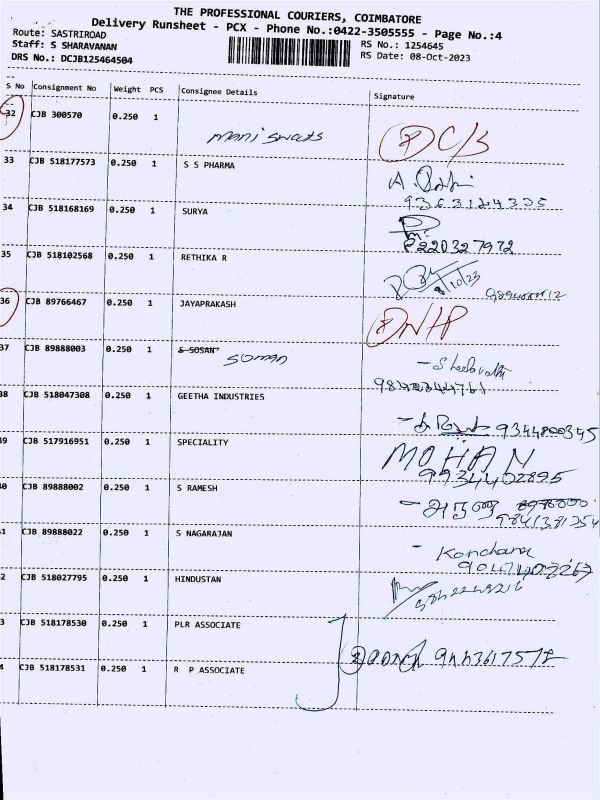 THE PROFESSIONAL COURIERS, COIMBATORE
Delivery Runsheet - PCX - Phone No.:0422-3505555 - Page No.:4
Route: SASTRIROAD
Staff: S SHARAVANAN
DRS No.: DCJB125464504
RS No.: 1254645
RS Date: 08-Oct-2023
S No Consignment No Weight PCS Consignee Details Signature
32 CJB 300570 0.250 1 mani sweets DC/S
33 CJB 518177573 0.250 1 S S PHARMA
9363124335
34 CJB 518168169 0.250 1 SURYA
8220327972
35 CJB 518102568 0.250 1 RETHIKA R
36 CJB 89766467 0.250 1 JAYAPRAKASH
37 CJB 89888003 0.250 1 S SOSAN soman
38 CJB 518047308 0.250 1 GEETHA INDUSTRIES
9344800345
39 CJB 517916951 0.250 1 SPECIALITY MOHAN
9934402895
40 CJB 89888002 0.250 1 S RAMESH
9841381254
41 CJB 89888022 0.250 1 S NAGARAJAN Kanchana
42 CJB 518027795 0.250 1 HINDUSTAN
43 CJB 518178530 0.250 1 PLR ASSOCIATE
44 CJB 518178531 0.250 1 R P ASSOCIATE